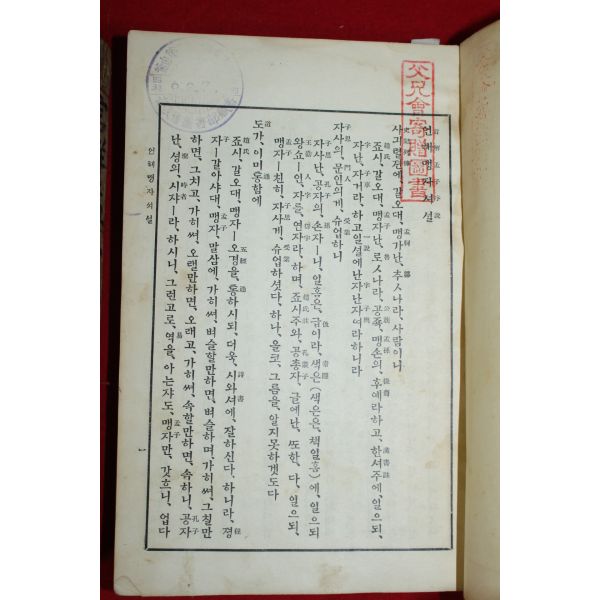 父兄會寄贈圖書
언해맹자셔셜
사긔렬뎐에, 갈오대, 맹가난, 추ㅅ나라, 사람이니
죠시, 갈오대, 맹자난, 로ㅅ나라, 공죡, 맹손의, 후예라하고, 한셔주에, 일으되,
자난, 자거라, 하고일셜에난자난자여라하니라
자사의, 문인의게, 슈업하니
자사난, 공자의, 손자ㅣ니, 일흠은, 급이라, 색은(색은은, 책일흠)에, 일으되
왕쇼ㅣ연, 자를, 연자라, 하며, 죠시주와, 공총자, 글에난, 또한, 다, 일으되,
맹자ㅣ친히, 자사게, 슈업하셧다, 하나, 올코, 그름을, 알지못하겟도다
도가, 이미통함에
죠시, 갈오대, 맹자ㅣ오경을, 통하시되, 더욱, 시와셔에, 잘하신다, 하니라, 졍
자ㅣ갈아샤대, 맹자, 말삼에, 가히써, 벼슬할만하면, 벼슬하며, 가히써, 그칠만
하면, 그치고, 가히써, 오랠만하면, 오래고, 가히써, 속할만하면, 속하니, 공자
난, 셩의, 시쟈ㅣ라, 하시니, 그런고로, 역을, 아는쟈도, 맹자만, 갓흐니, 업다
언해맹자셔셜
一